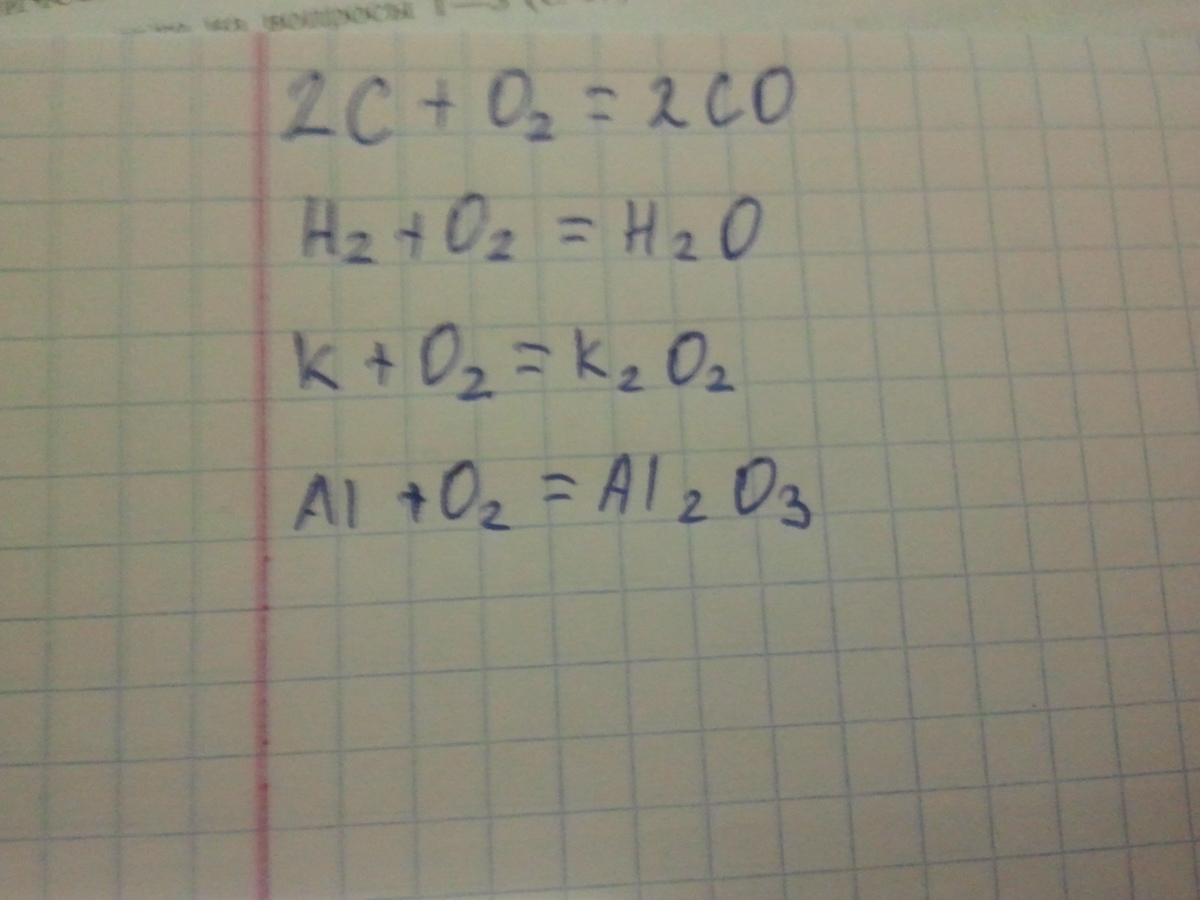 2C + O₂ = 2CO
H₂ + O₂ = H₂O
K + O₂ = K₂O₂
Al + O₂ = Al₂O₃